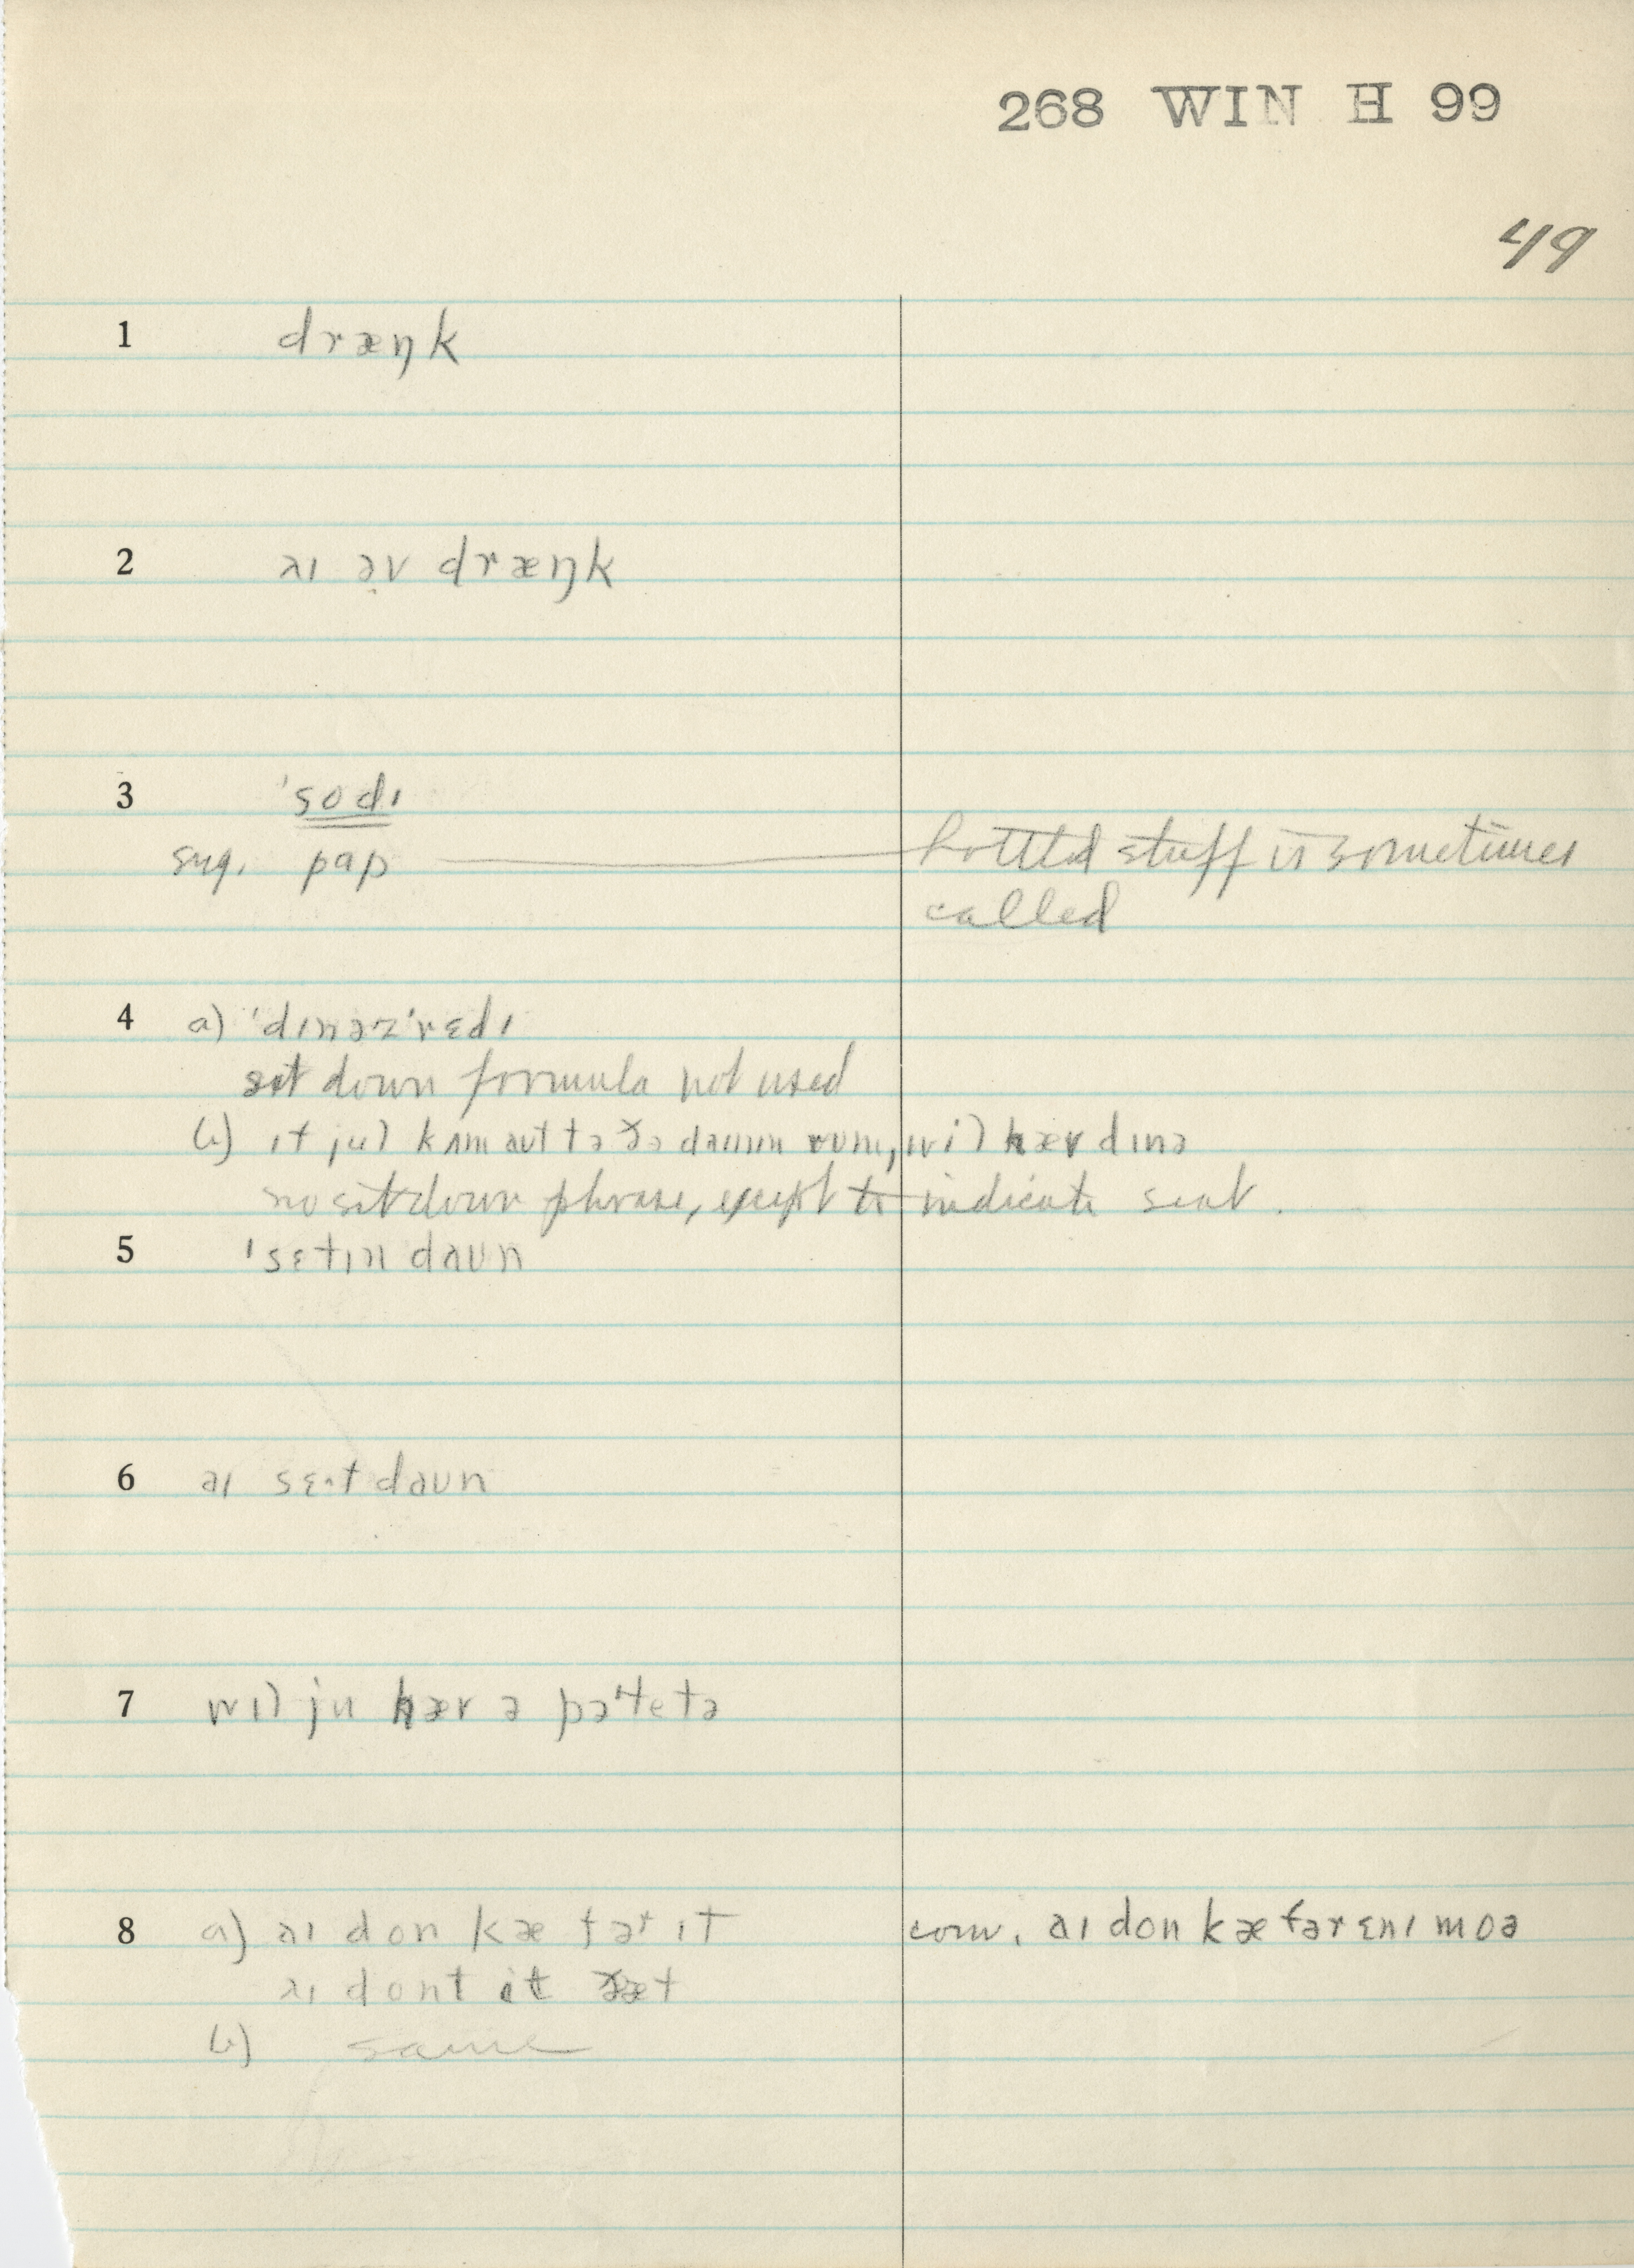 268 WIN H 99
49
1 dræŋk
2 aɪ əv dræŋk
3 'sodɪ
sug. pap bottled stuff is sometimes
called
4 a) 'dɪnəz 'rɛdɪ
sit down formula not used
b) ɪf jul kʌm aut tə ðə daɪnɪn rum, wil hæv dɪnə
no sit down phrase, except to indicate seat.
5 'sɛtɪn daun
6 aɪ sɛ·t daun
7 wɪl ju hæv ə pə'tetə
8 a) aɪ don kæ fər ɪt conv. aɪ don kæ fər ɛnɪ moə
aɪ dont it ðæt
b) same